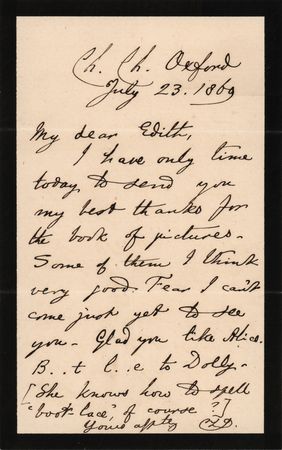 Ch. Ch. Oxford
July 23. 1869
My dear Edith,
I have only time
today to send you
my best thanks for
the book of pictures.
Some of them I think
very good. Fear I can't
come just yet to see
you. Glad you like Alice.
B..t l..e to Dolly.
[She knows how to spell
"boot-lace," of course?]
Yours affty CLD.